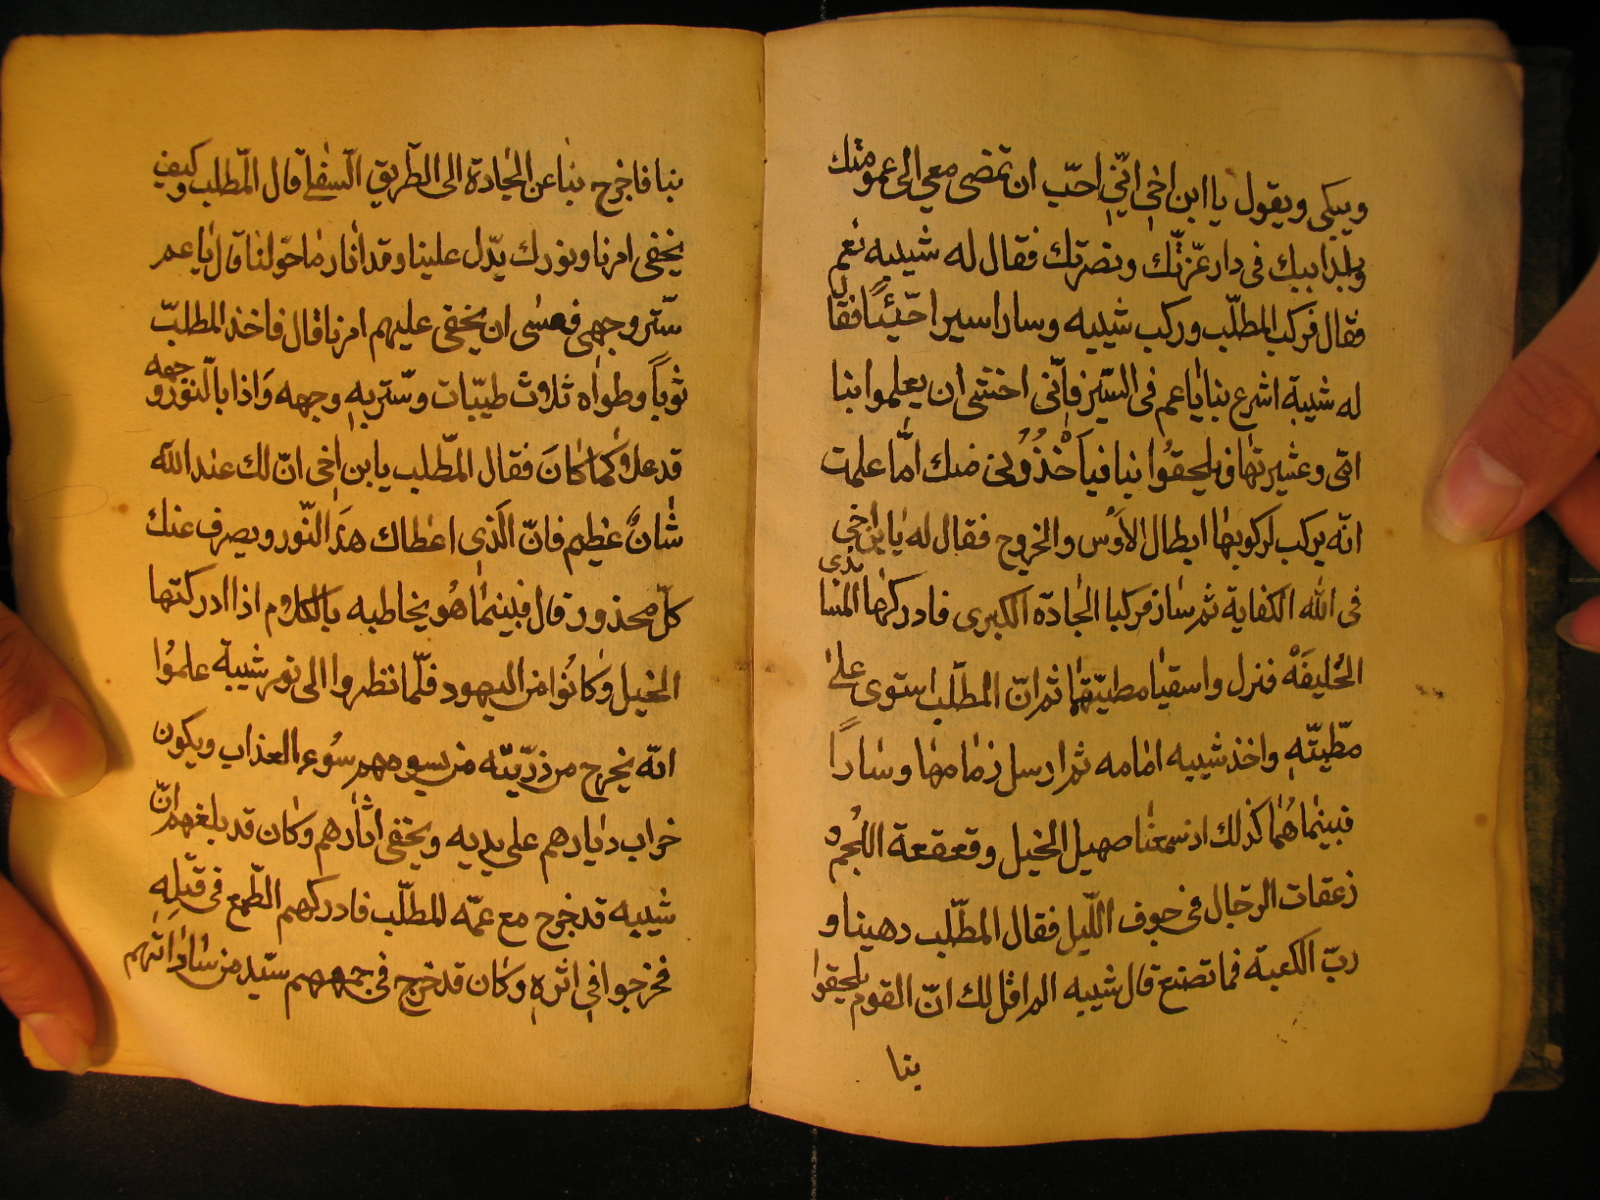 ويبكي ويقول يا ابن اخي انّني احبّ ان تمضى معي الى عمومتك
وبلد ابيك في دار عزّتك ونصرتك فقال له شيبه نعم
فقال فركب المطلّب وركب شيبه وسارا سيرا حثيثًا فقال
له شيبة اسرع بنا يا عم في السّير فإنّى اخشى ان يعلموا بنا
امّى وعشيرتها فيلحقُوا بنا فيأخْذُوُنى منك امّا علمت
انّه يركب لركوبها ابطال الأوْس والخزرج فقال له يا بن اخي
في الله الكفاية ثم سار فركبا الجادة الكبرى فادركها المسا بذى
الحُليفَةْ فنزل واسقيا مطيّتهما ثم انّ المطلّب استوى على
مطّيتّهِ واخذ شيبه امامه ثم ارسل زمامها وسارا
فبينما هُما كذلك اذ سمعنا صهيل الخيل وقعقعة اللُجم و
زعقات الرجال في جوف اللّيل فقال المطّلب دهينا و
ربّ الكعبة فما تصنع قال شيبه الم اقل لك انّ القوم يلحقوا
بنا
بنا فاخرج بنا عن الجادة الى الطّريق السّفلى قال المطّلب وكيف
يخفى امرنا ونورك يدّل علينا وقد انار ما حوّلنا قال يا عم
ستّر وجهي فعسى ان يخفى عليهم امرنا قال فاخذ المطلبّ
ثوباً وطواه ثلاث طيّبات وستّر بهِ وجهه وَاذا بالنّور وجهه
قد علا وكما كانَ فقال المطّلب يا بن اخي انّ لك عند الله
شانٌ عظيم فانّ الّذى اعطاك هذا النّور ويصرف عنك
كلّ محذور قال فبينما هُو يخاطبه بالكلام اذا ادركتها
الخيل وكانُوا من اليهود فلّما نظروا الى نور شيبة علموُا
انّه يخرج من ذرّيتّه من يسومهم سُوء العذاب ويكون
خراب ديارهم على يديه ويخفى اثارهم وكان قد بلغهم انّ
شيبه قد خرج مع عمّه المطلّب فادركهم الطّمع في قتلِهِ
فخرجوا في اثرهِ وكان قد خرج في جمعهم سيّد من ساداتهم